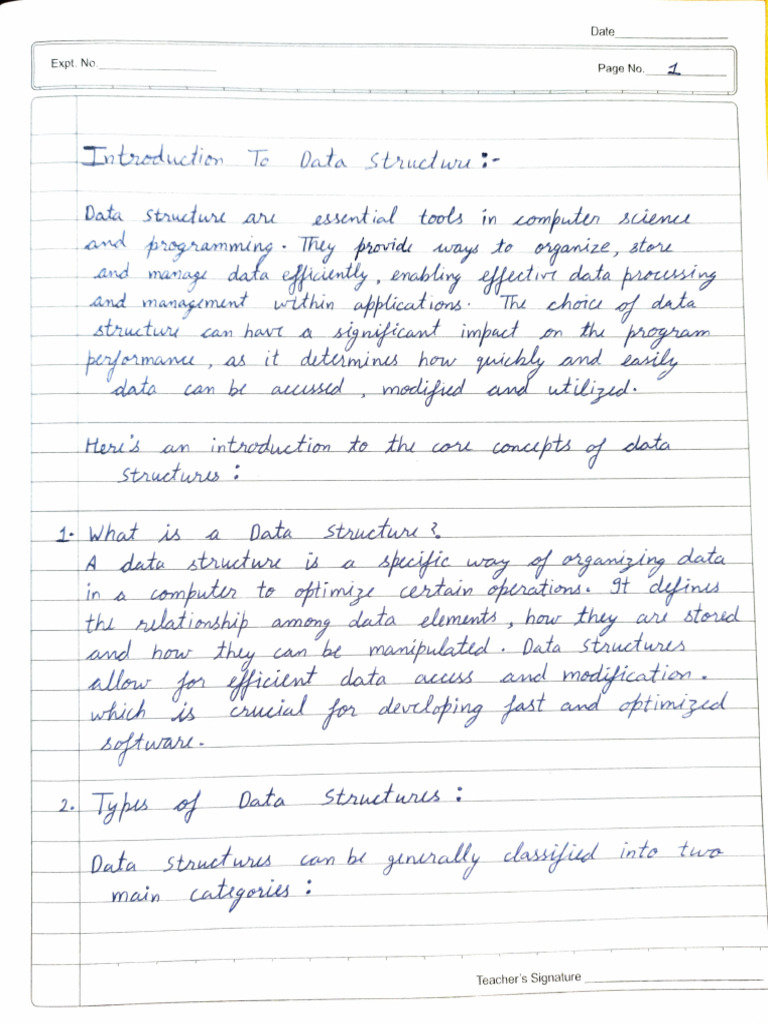 Date
Expt. No.
Page No. 1
Introduction To Data Structure:-
Data structure are essential tools in computer science
and programming. They provide ways to organize, store
and manage data efficiently, enabling effective data processing
and management within applications. The choice of data
structure can have a significant impact on the program
performance, as it determines how quickly and easily
data can be accessed, modified and utilized.
Here's an introduction to the core concepts of data
structures:
1. What is a Data Structure?
A data structure is a specific way of organizing data
in a computer to optimize certain operations. It defines
the relationship among data elements, how they are stored
and how they can be manipulated. Data structures
allow for efficient data access and modification.
which is crucial for developing fast and optimized
software.
2. Types of Data Structures:
Data structures can be generally classified into two
main categories:
Teacher's Signature